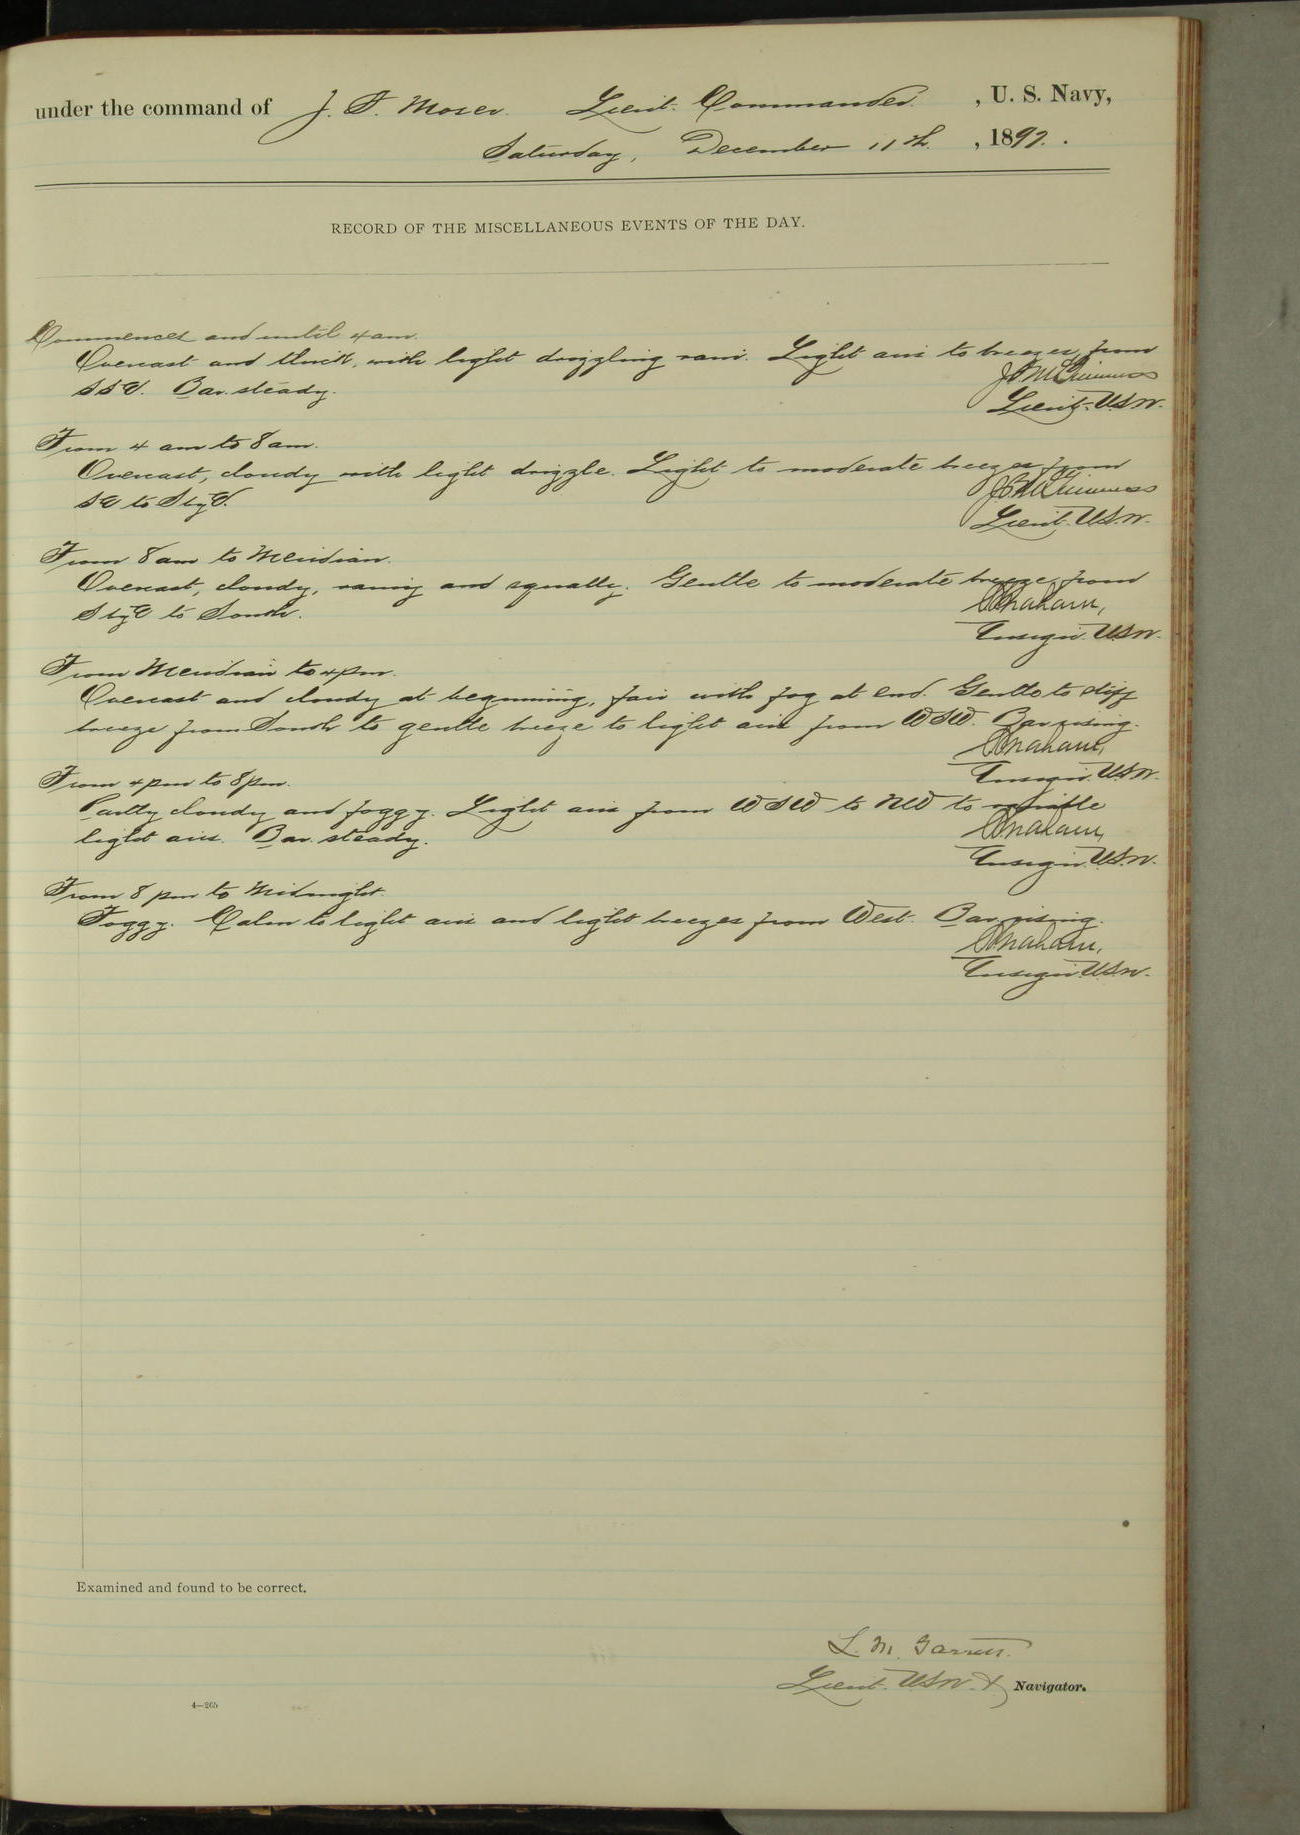 under the command of J. F. Moser. Lieut. Commander. , U. S. Navy,
Saturday, December 11th. , 1897.
RECORD OF THE MISCELLANEOUS EVENTS OF THE DAY.
Commences and until 4 am.
Overcast and thick, with light drizzling rain. Light airs to breezes from
SSE. Bar. steady.
Lieut. U.S.N.
From 4 am to 8 am.
Overcast, cloudy with light drizzle. Light to moderate breezes from
SE to SbyE.
Lieut. U.S.N.
From 8 am to Meridian.
Overcast, cloudy, rainy and squally. Gentle to moderate breeze from
SbyE to South.
Graham,
Ensign. U.S.N.
From Meridian to 4 pm.
Overcast and cloudy at beginning, fair with fog at end. Gentle to stiff
breeze from South to gentle breeze to light airs from WSW. Bar rising.
Graham,
Ensign. U.S.N.
From 4 pm to 8 pm.
Partly cloudy and foggy. Light airs from WSW to NW to variable
light airs. Bar. steady.
Graham,
Ensign U.S.N.
From 8 pm to Midnight.
Foggy. Calm to light airs and light breezes from West. Bar rising.
Graham,
Ensign U.S.N.
Examined and found to be correct.
L. M. Garrett.
Lieut. U.S.N. & Navigator.
4—265